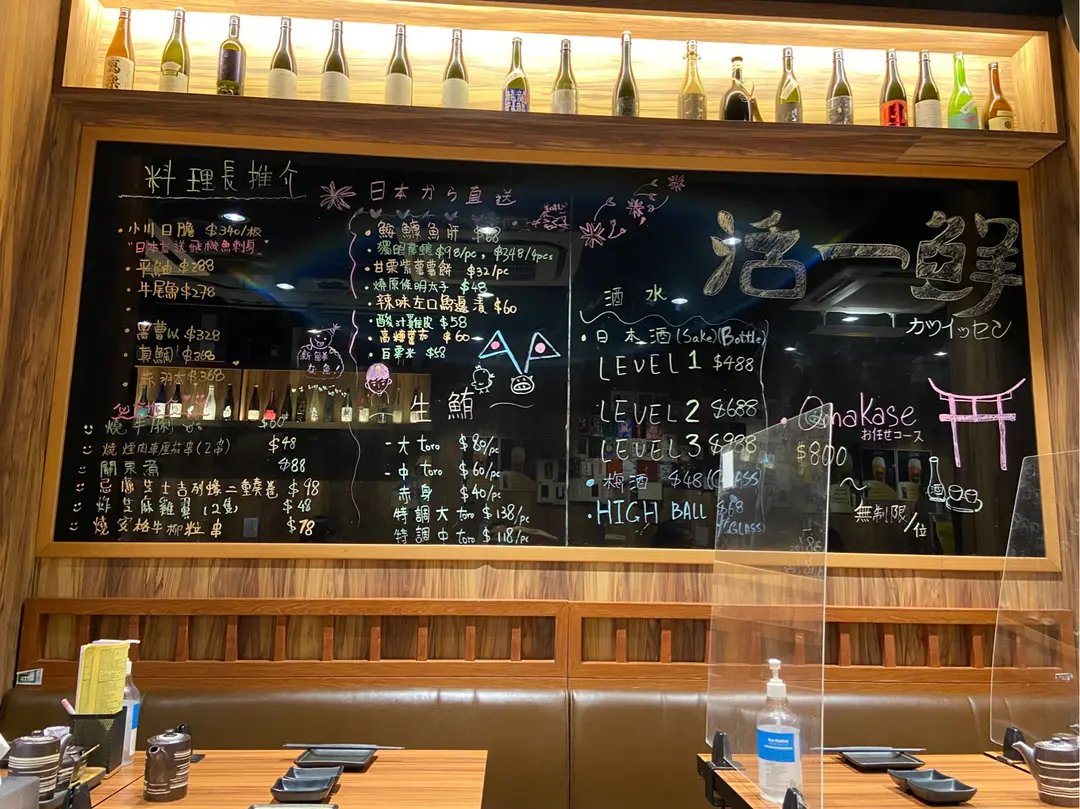 料理長推介
小川日膽 $340/板
"日本直送飛機魚刺身"
平鈾 $288
牛尾魚 $278
$328
真鯛 $368
赤羽太 $368
新鮮
魚!
$60
燒 $48
關東煮 $88
芝士吉列蠔二重奏卷 $98
炸芝麻雞翼(2隻) $48
燒安格牛柳粒串 $78
日本から直送
鮟鱇魚肝 $68
$98/pc, $348/4pcs
甘栗紫薯薯餅 $32/pc
燒原條明太子 $48
辣味左口魚邊漬 $60
酸汁雞皮 $58
高糖蕃茄 $60
白粟米 $68
生鮪
- 大toro $80/pc
- 中toro $60/pc
赤身 $40/pc
特調大toro $138/pc
特調中toro $118/pc
酒水
日本酒(Sake)(Bottle)
LEVEL 1 $488
LEVEL 2 $688
LEVEL 3 $988
梅酒 $48/GLASS
HIGH BALL $68
/GLASS
活一鮮
カツイッセン
Omakase
お任せコース
$800
~
無制限/位